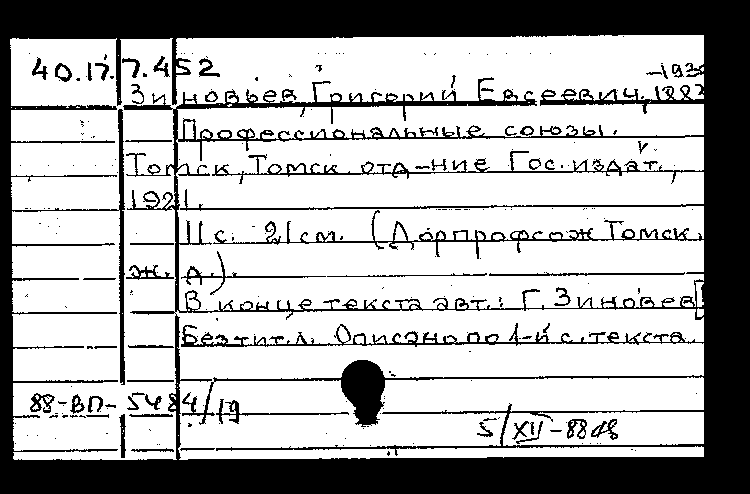 40.17.7.452
Зиновьев, Григорий Евсеевич, 1883
-193
Профессиональные союзы.
Томск, Томск. отд-ние Гос. издат.,
1921.
11 с. 21 см. (Дорпрофсож Томск.
ж. д.).
В конце текста авт.: Г. Зиновьев
Без тит. л. Описано по 1-й с. текста.
88-ВП-5484/19
5/XII-88